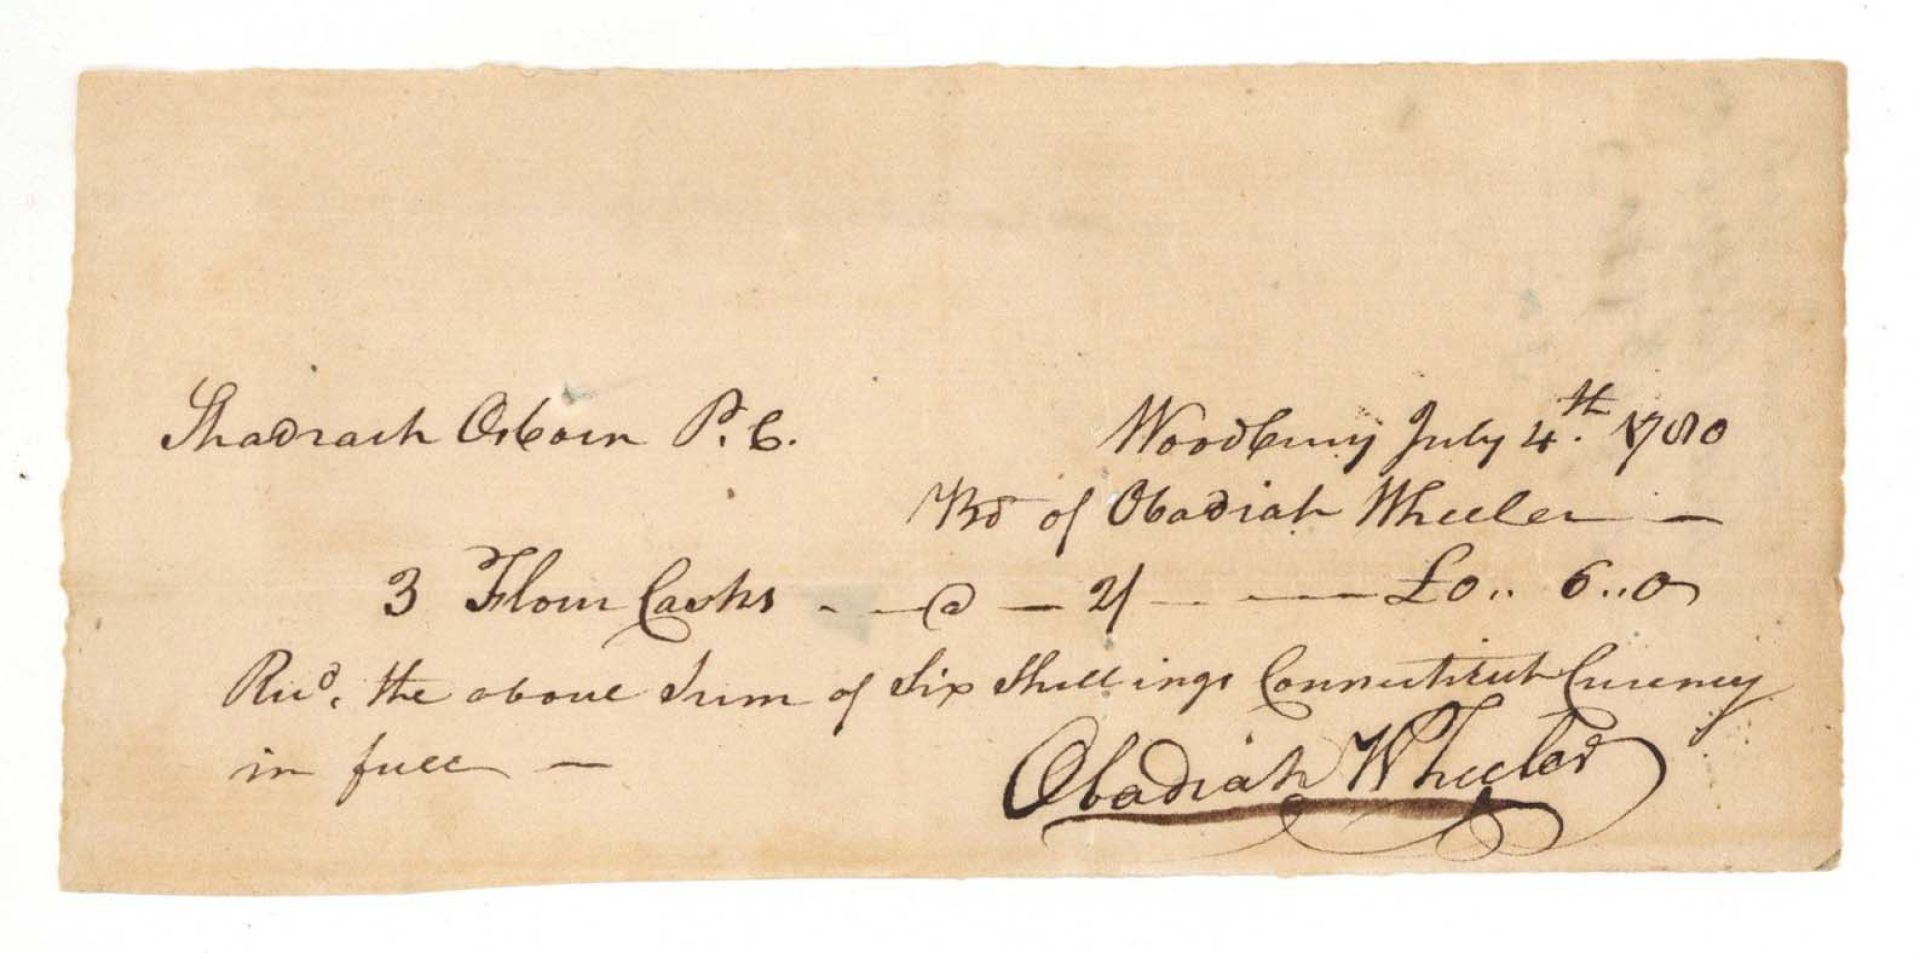 Shadrach Osborn P. C. Woodbury July 4th. 1780
Rd of Obadiah Wheeler —
3 Flour Casks - - @ — 2/ — — £0.. 6..0
Recd. the above Sum of Six Shillings Connecticut Currency
in full —
Obadiah Wheeler